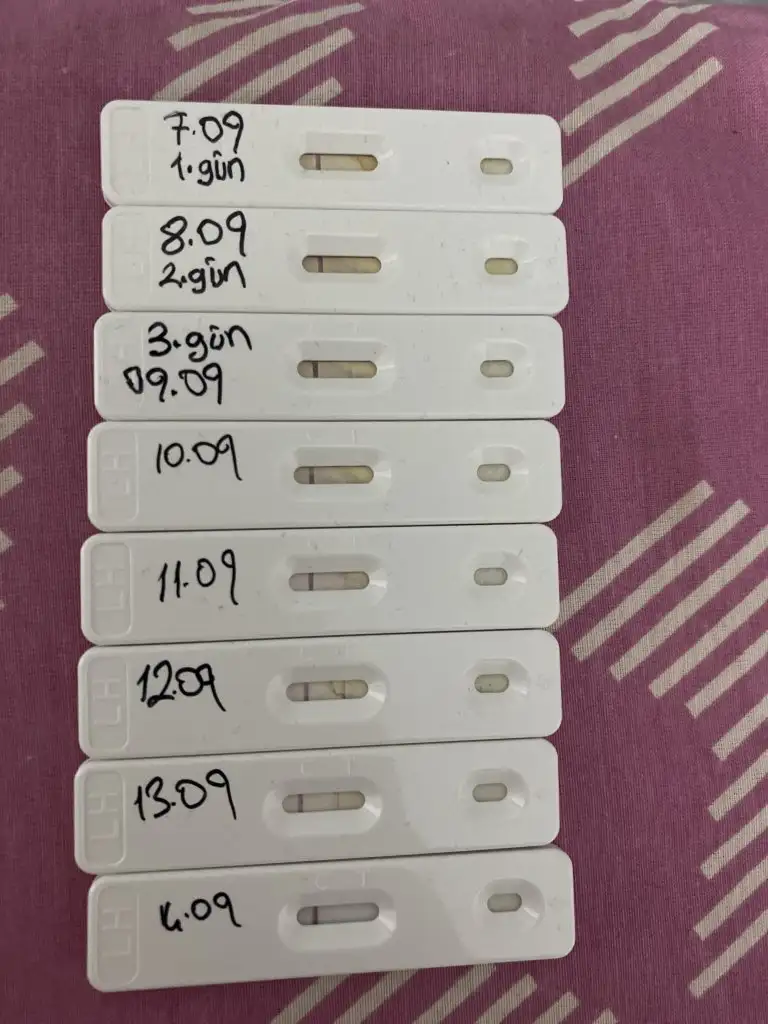 7.09
1.gün
8.09
2.gün
3.gün
09.09
10.09
LH
11.09
LH
12.09
LH
13.09
LH
14.09
LH